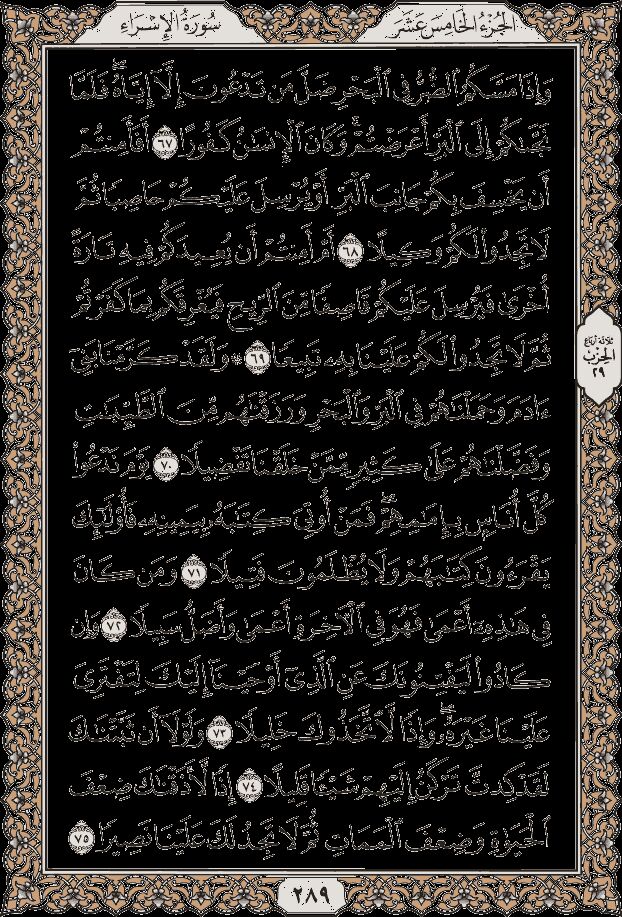 الجزء الخامس عشر
سورة الإسراء
وَإِذَا مَسَّكُمُ ٱلضُّرُّ فِي ٱلۡبَحۡرِ ضَلَّ مَن تَدۡعُونَ إِلَّآ إِيَّاهُۖ فَلَمَّا
نَجَّىٰكُمۡ إِلَى ٱلۡبَرِّ أَعۡرَضۡتُمۡۚ وَكَانَ ٱلۡإِنسَٰنُ كَفُورًا ٦٧ أَفَأَمِنتُمۡ
أَن يَخۡسِفَ بِكُمۡ جَانِبَ ٱلۡبَرِّ أَوۡ يُرۡسِلَ عَلَيۡكُمۡ حَاصِبٗا ثُمَّ
لَا تَجِدُواْ لَكُمۡ وَكِيلًا ٦٨ أَمۡ أَمِنتُمۡ أَن يُعِيدَكُمۡ فِيهِ تَارَةً
أُخۡرَىٰ فَيُرۡسِلَ عَلَيۡكُمۡ قَاصِفٗا مِّنَ ٱلرِّيحِ فَيُغۡرِقَكُم بِمَا كَفَرۡتُمۡ
ثُمَّ لَا تَجِدُواْ لَكُمۡ عَلَيۡنَا بِهِۦ تَبِيعٗا ٦٩ ۞ وَلَقَدۡ كَرَّمۡنَا بَنِيٓ
ءَادَمَ وَحَمَلۡنَٰهُمۡ فِي ٱلۡبَرِّ وَٱلۡبَحۡرِ وَرَزَقۡنَٰهُم مِّنَ ٱلطَّيِّبَٰتِ
وَفَضَّلۡنَٰهُمۡ عَلَىٰ كَثِيرٖ مِّمَّنۡ خَلَقۡنَا تَفۡضِيلٗا ٧٠ يَوۡمَ نَدۡعُواْ
كُلَّ أُنَاسِۭ بِإِمَٰمِهِمۡۖ فَمَنۡ أُوتِيَ كِتَٰبَهُۥ بِيَمِينِهِۦ فَأُوْلَٰٓئِكَ
يَقۡرَءُونَ كِتَٰبَهُمۡ وَلَا يُظۡلَمُونَ فَتِيلٗا ٧١ وَمَن كَانَ
فِي هَٰذِهِۦٓ أَعۡمَىٰ فَهُوَ فِي ٱلۡأٓخِرَةِ أَعۡمَىٰ وَأَضَلُّ سَبِيلٗا ٧٢ وَإِن
كَادُواْ لَيَفۡتِنُونَكَ عَنِ ٱلَّذِيٓ أَوۡحَيۡنَآ إِلَيۡكَ لِتَفۡتَرِيَ
عَلَيۡنَا غَيۡرَهُۥۖ وَإِذٗا لَّٱتَّخَذُوكَ خَلِيلٗا ٧٣ وَلَوۡلَآ أَن ثَبَّتۡنَٰكَ
لَقَدۡ كِدتَّ تَرۡكَنُ إِلَيۡهِمۡ شَيۡـٔٗا قَلِيلًا ٧٤ إِذٗا لَّأَذَقۡنَٰكَ ضِعۡفَ
ٱلۡحَيَوٰةِ وَضِعۡفَ ٱلۡمَمَاتِ ثُمَّ لَا تَجِدُ لَكَ عَلَيۡنَا نَصِيرٗا ٧٥
ثلاثة أرباع
الحزب
٢٩
٢٨٩